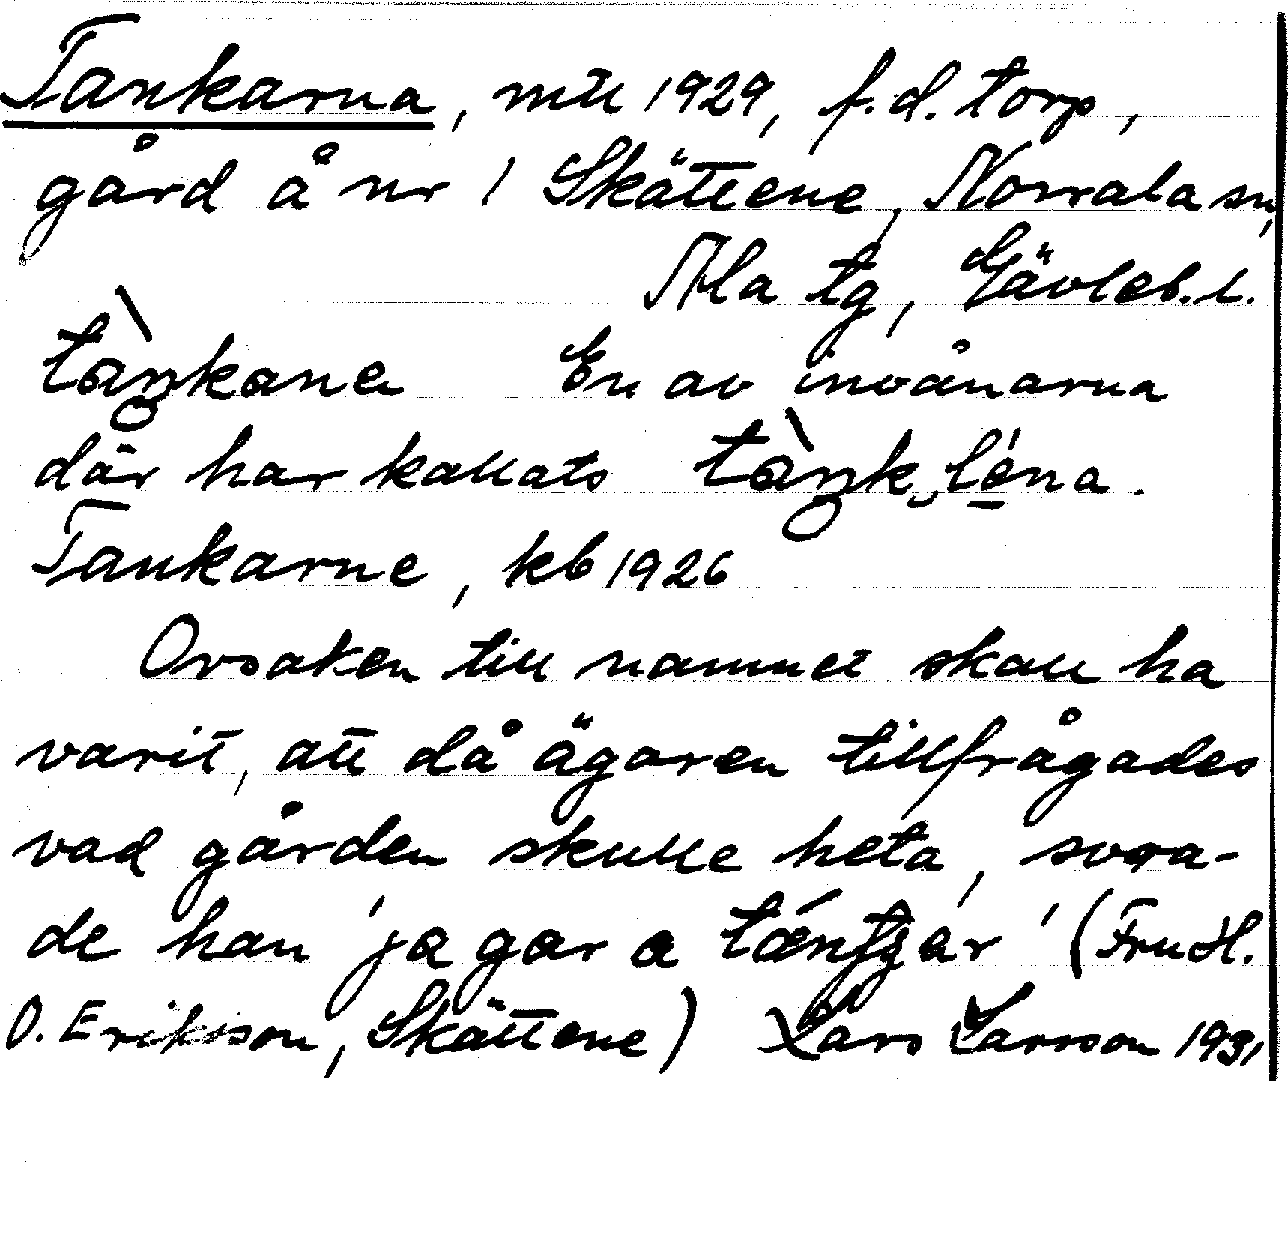 Tankarna, mtl 1929, f.d. torp,
gård å nr 1 Skättene, Norrala sn,
Ala tg, Gävleb.l.
tàŋkana En av invånarna
där har kallats tàŋkˌléna.
Tankarne, kb 1926
Orsaken till namnet skall ha
varit, att då ägaren tillfrågades
vad gården skulle heta, svara-
de han 'ja gar a
' (Fru H.
O. Eriksson, Skättene) Lars Larsson 1931